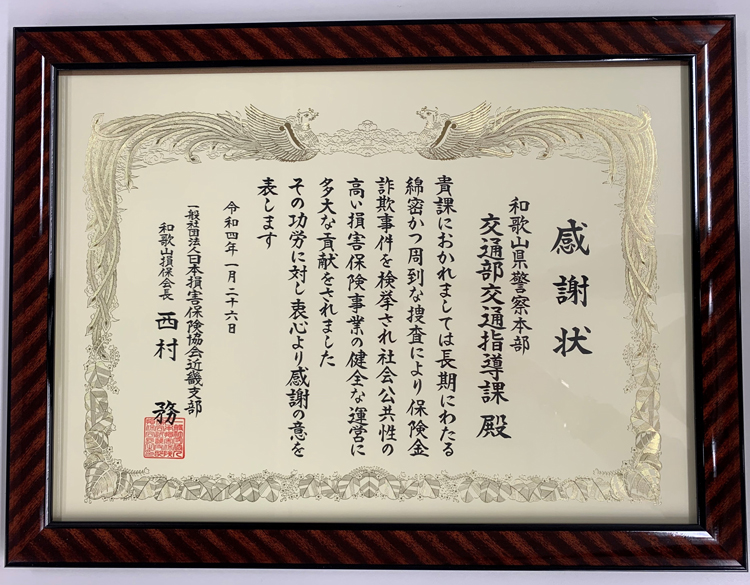 感謝状
和歌山県警察本部
交通部交通指導課 殿
貴課におかれましては長期にわたる
綿密かつ周到な捜査により保険金
詐欺事件を検挙され社会公共性の
高い損害保険事業の健全な運営に
多大な貢献をされました
その功労に対し衷心より感謝の意を
表します
令和四年一月二十六日
一般社団法人日本損害保険協会近畿支部
和歌山損保会長 西村 務